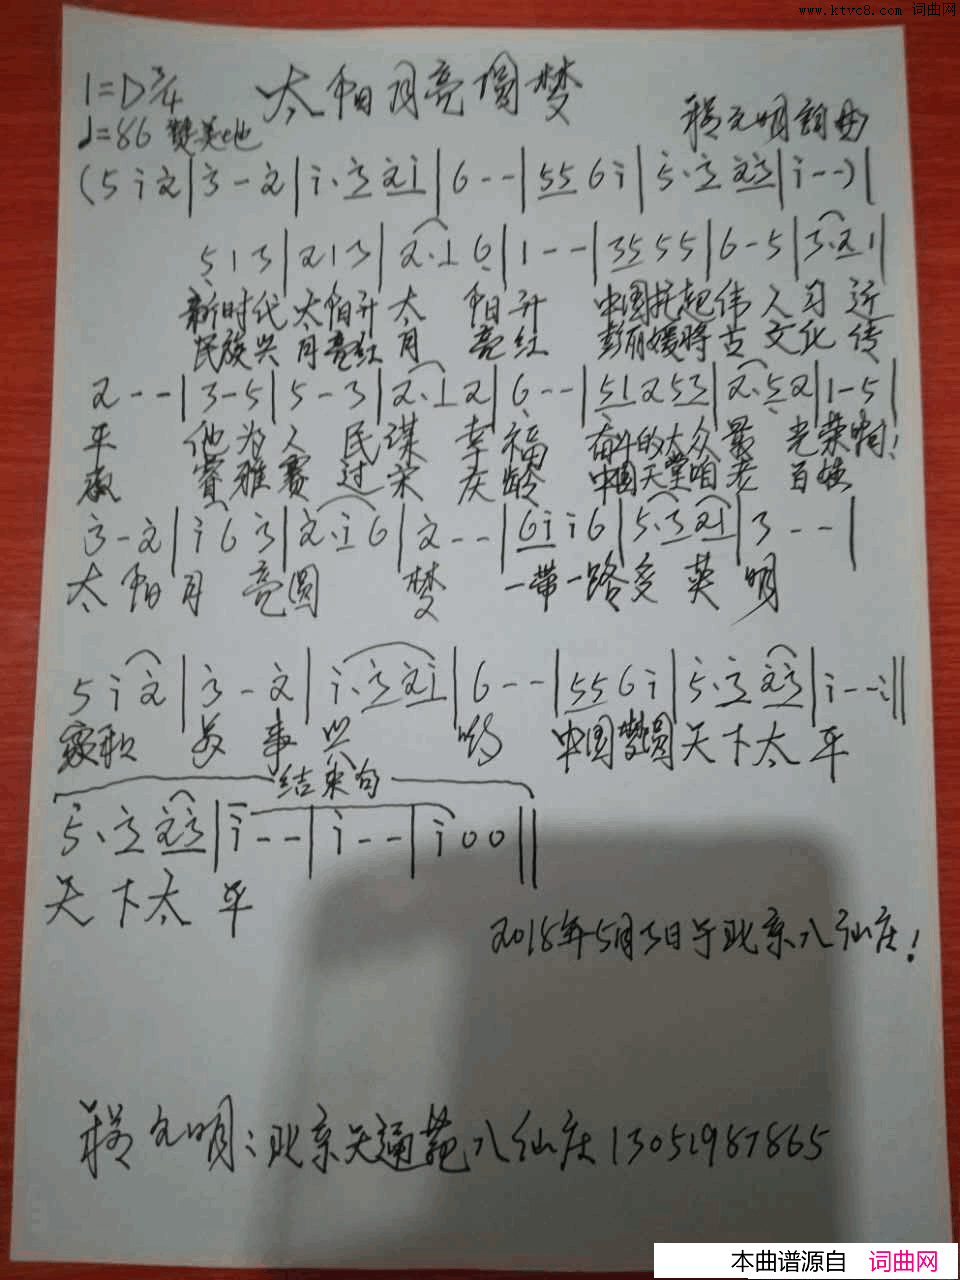 www.ktvc8.com 词曲网
1=D 3/4 太阳月亮圆梦
♩=86 赞美地 元明詞曲
(5 i 2|3 - 2|i·3 2i|6 - -|55 6i|5·3 23|i - -)|
5 1 3|2 1 3|2·1 6|1 - -|35 5 5|6 - 5|3·2 1|
新时代 太阳升 太 阳升 中国托起伟人习近
民族兴 月亮红 月 亮红 彭丽媛将古文化传
2 - -|3 - 5|5 - 3|2·1 2|6 - -|51 2 53|2·5 2|1 - 5|
平 他为人民谋幸福 奋斗的大众最光荣啊!
承 睿雅赛过宋庆龄 中国天堂咱老百姓
3 - 2|i 6 3|2·i 6|2 - -|6i i 6|5·3 2i|3 - -|
太阳月亮圆 梦 一带一路多英明
5 i 2|3 - 2|i·3 2i|6 - -|55 6i|5·3 23|i - -:||
家和 万事兴 哟 中国梦圆天下太平
结束句
5·3 23|i - -|i - -|i 0 0||
天下太平
2018年5月3日于北京八仙庄!
元明:北京天通苑八仙庄13051987865
本曲谱源自 词曲网